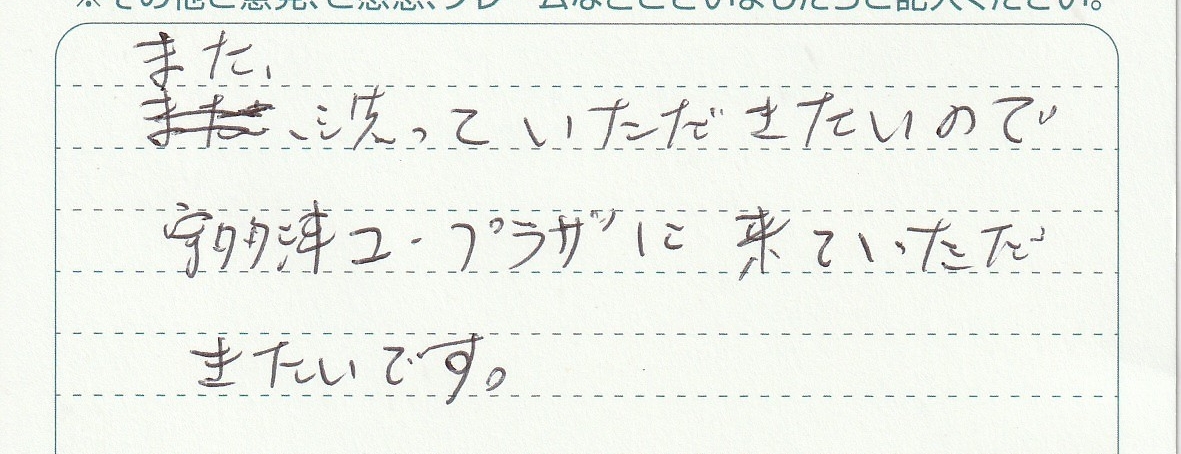 ※その他ご意見、ご感想、クレームなどございましたらご記入ください。
また、
また、洗っていただきたいので
宇多津コープラザに来ていただ
きたいです。